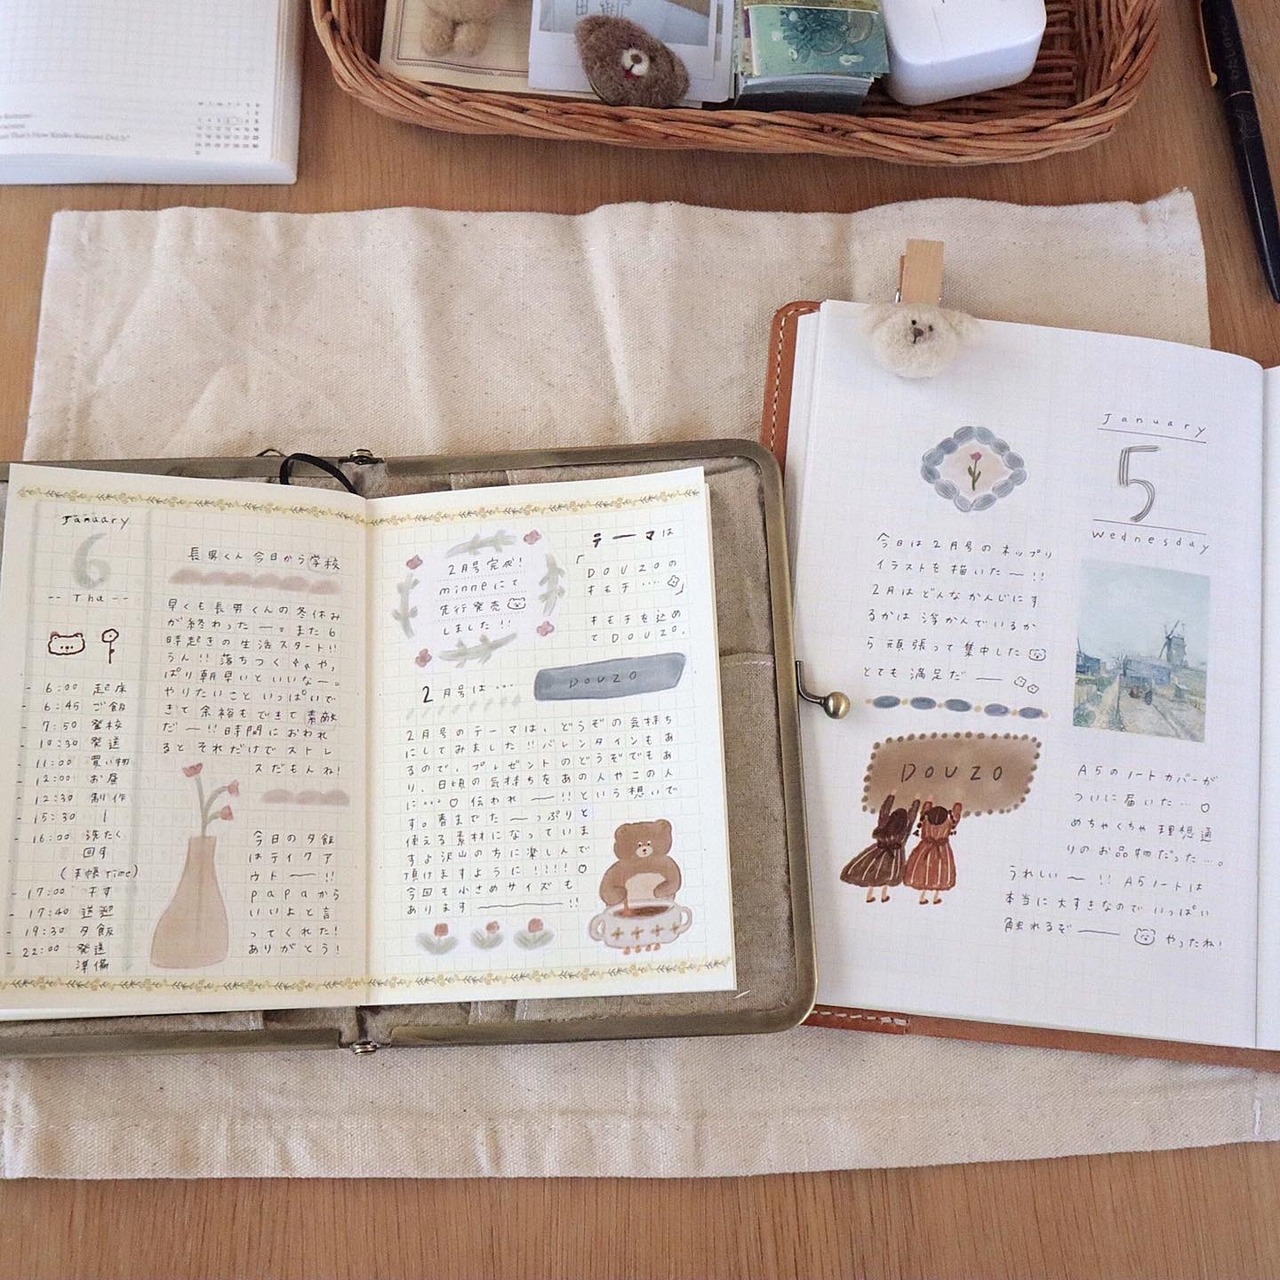 January
6
-- Thu --
- 6:00 起床
- 6:45 ご飯
- 7:50 登校
- 10:30 発送
- 11:00 買い物
- 12:00 お昼
- 12:30 制作
- 15:30 |
- 16:00 洗たく
回す
(手帳time)
- 17:00 干す
- 17:40 送迎
- 19:30 夕飯
- 22:00 発送
準備
長男くん 今日から学校
早くも長男くんの冬休み
が終わった ー。また6
時起きの生活スタート!!
うん!! 落ちつく や,
ぱり朝早いといいなー。
やりたいこと いっぱいで
きて 余裕もできて 素敵
だー!! 時間におわれ
ると それだけで ストレ
スだもんね!
今日の夕飯
はテイクア
ウトー!!
papaから
いいよと言
ってくれた!
ありがとう!
2月号完成!
minneにて
先行発売
しました!!
テーマは
「DOUZOの
キモチ....」
キモチを込め
てDOUZO.
2月号は...
DOUZO
2月号のテーマは、どうぞの気持ち
にしてみました!! バレンタインもあ
るので、プレゼントのどうぞでもあ
り、日頃の気持ちをあの人やこの人
に...♡ 伝われー!! という想いで
す。春までたーっぷりと
使える素材になっていま
すよ 沢山の方に楽しんで
頂けますように!!!! ♡
今回も小さめサイズも
ありますー!!
January
5
Wednesday
今日は2月号のキップリ
イラストを描いたー!!
2月はどんなかんじにす
るかは 浮かんでいるか
ら 頑張って集中した
とても満足だー
DOUZO
A5のノートカバーが
ついに届いた... ♡
めちゃくちゃ理想通
りのお品物だった...。
うれしいー!! A5ノートは
本当に大すきなので いっぱい
触れるぞー やったね!